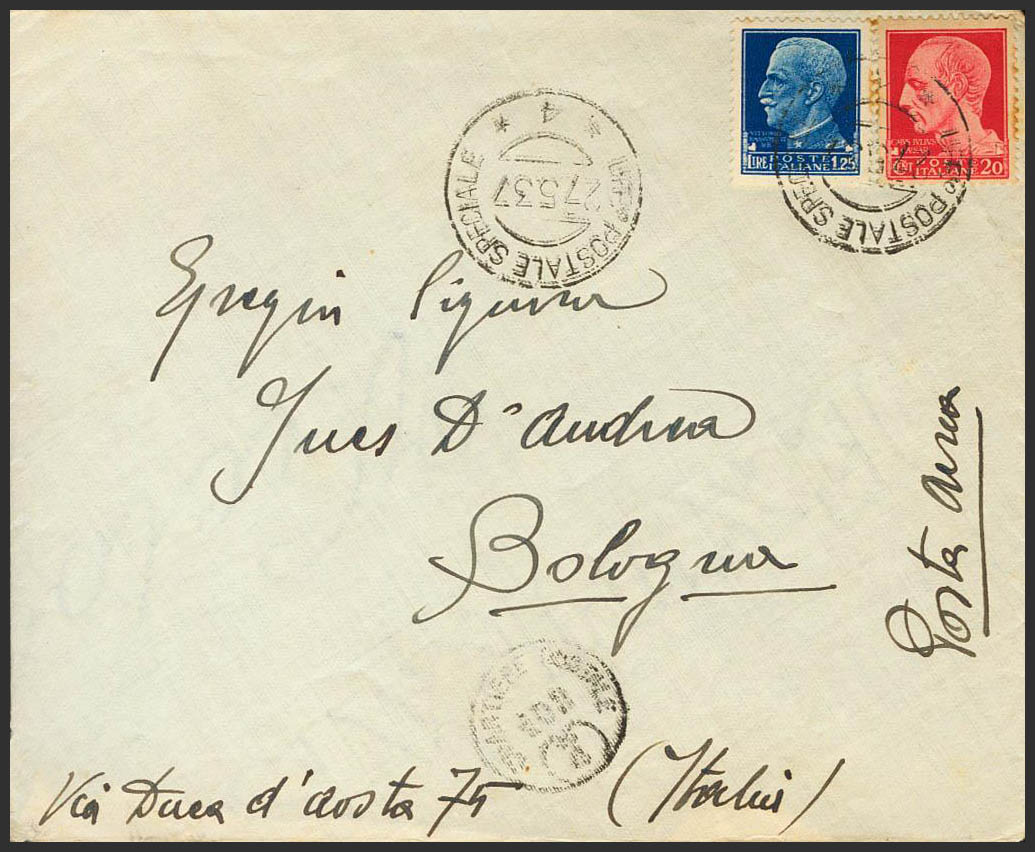 VITTORIO
LIRE POSTE ITALIANE 1.25
CAIVS IVLIVS
CAESAR
CENT. POSTE ITALIANE 20
UFF° POSTALE SPECIALE
* 4 *
27.5.37
UFF° POSTALE SPECIALE
Egregia Signora
Ines D'Andrea
Bologna
Posta Aerea
PORTALETTERE
Via Duca d'Aosta 75 (Italia)